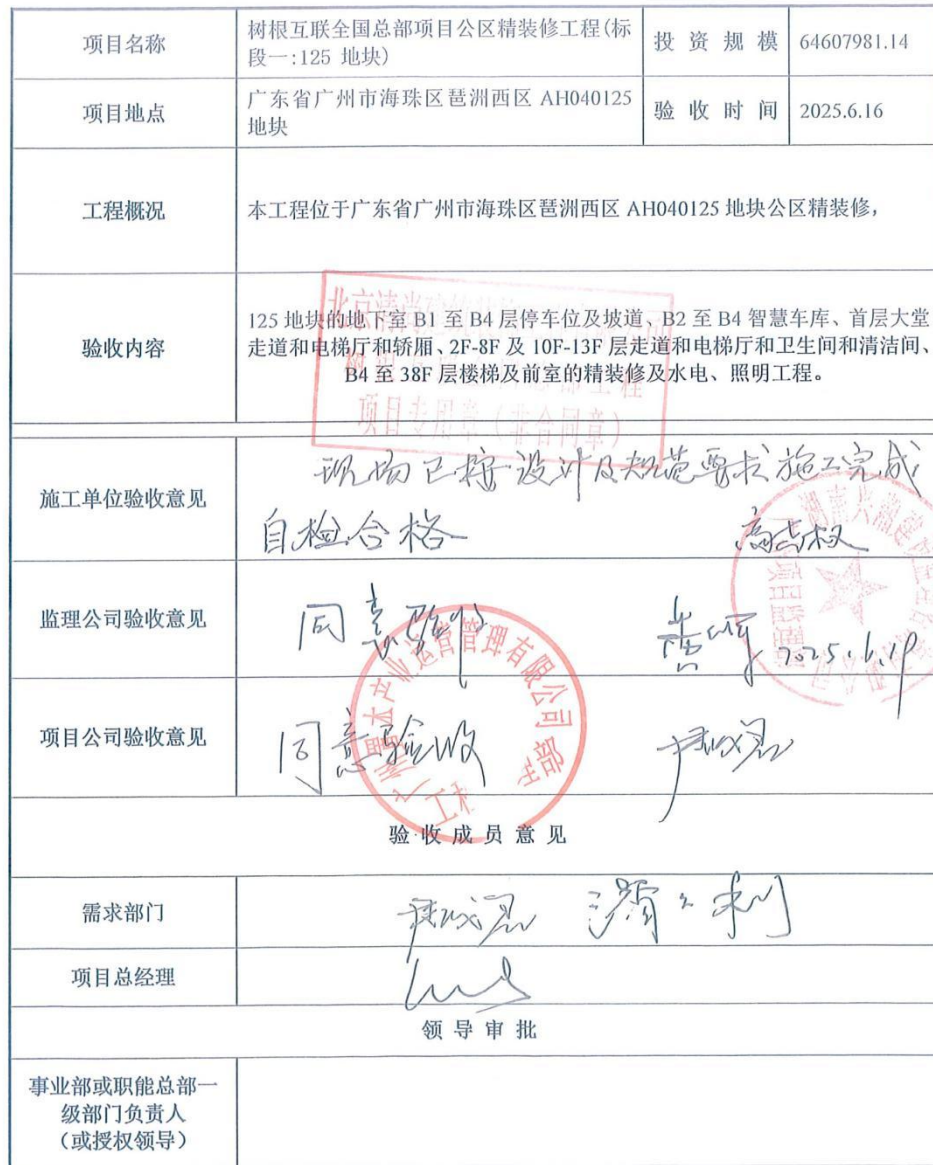 项目名称
树根互联全国总部项目公区精装修工程(标
段一:125 地块)
投资规模
64607981.14
项目地点
广东省广州市海珠区琶洲西区 AH040125
地块
验收时间
2025.6.16
工程概况
本工程位于广东省广州市海珠区琶洲西区 AH040125 地块公区精装修，
验收内容
125 地块的地下室 B1 至 B4 层停车位及坡道、B2 至 B4 智慧车库、首层大堂
走道和电梯厅和轿厢、2F-8F 及 10F-13F 层走道和电梯厅和卫生间和清洁间、
B4 至 38F 层楼梯及前室的精装修及水电、照明工程。
项目专用章（非合同章）
施工单位验收意见
现场已按设计及规范要求施工完成
自检合格
监理公司验收意见
同意验收
2025.6.19
项目公司验收意见
同意验收
产业运营管理有限公司
验收成员意见
需求部门
项目总经理
领导审批
事业部或职能总部一
级部门负责人
（或授权领导）